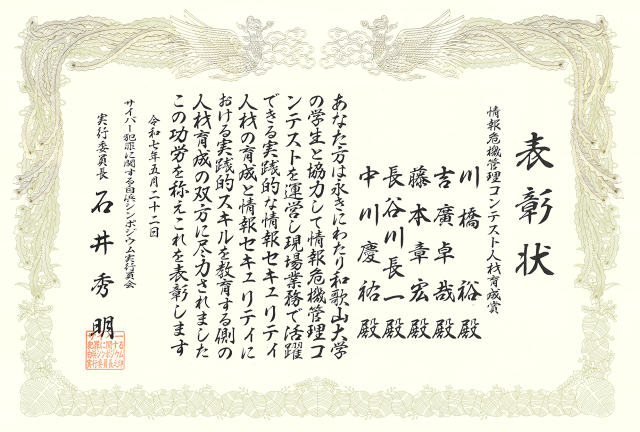 表彰状
情報危機管理コンテスト人材育成賞
川橋 裕 殿
吉廣卓哉 殿
藤本章宏 殿
長谷川長一 殿
中川慶祐 殿
あなた方は永きにわたり和歌山大学
の学生と協力して情報危機管理コ
ンテストを運営し現場業務で活躍
できる実践的な情報セキュリティ
人材の育成と情報セキュリティに
おける実践的スキルを教育する側の
人材育成の双方に尽力されました
この功労を称えこれを表彰します
令和七年五月二十二日
サイバー犯罪に関する白浜シンポジウム実行委員会
実行委員長 石井秀明